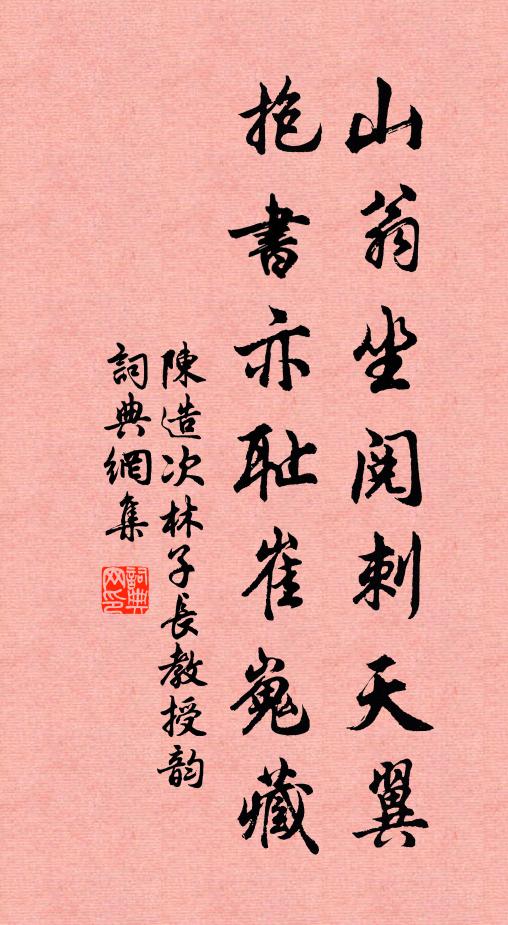 山翁坐閱刺天翼
抱書亦耻崔嵬藏
陳造次林子長教授韵
詞典網集
詞典网印